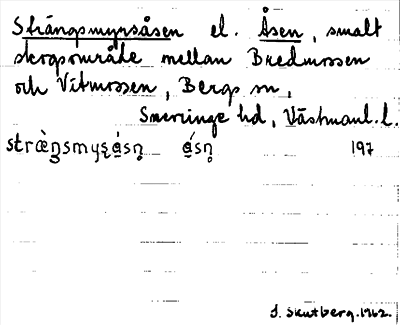 Strängsmyrsåsen el. Åsen, smalt
skogsområde mellan Bredmossen
och Vitmossen, Bergs sn,
Snevringe hd, Västmanl. l.
stræ̀ŋsmyʂásn̥ ásn̥ 197
S. Skutberg. 1962.